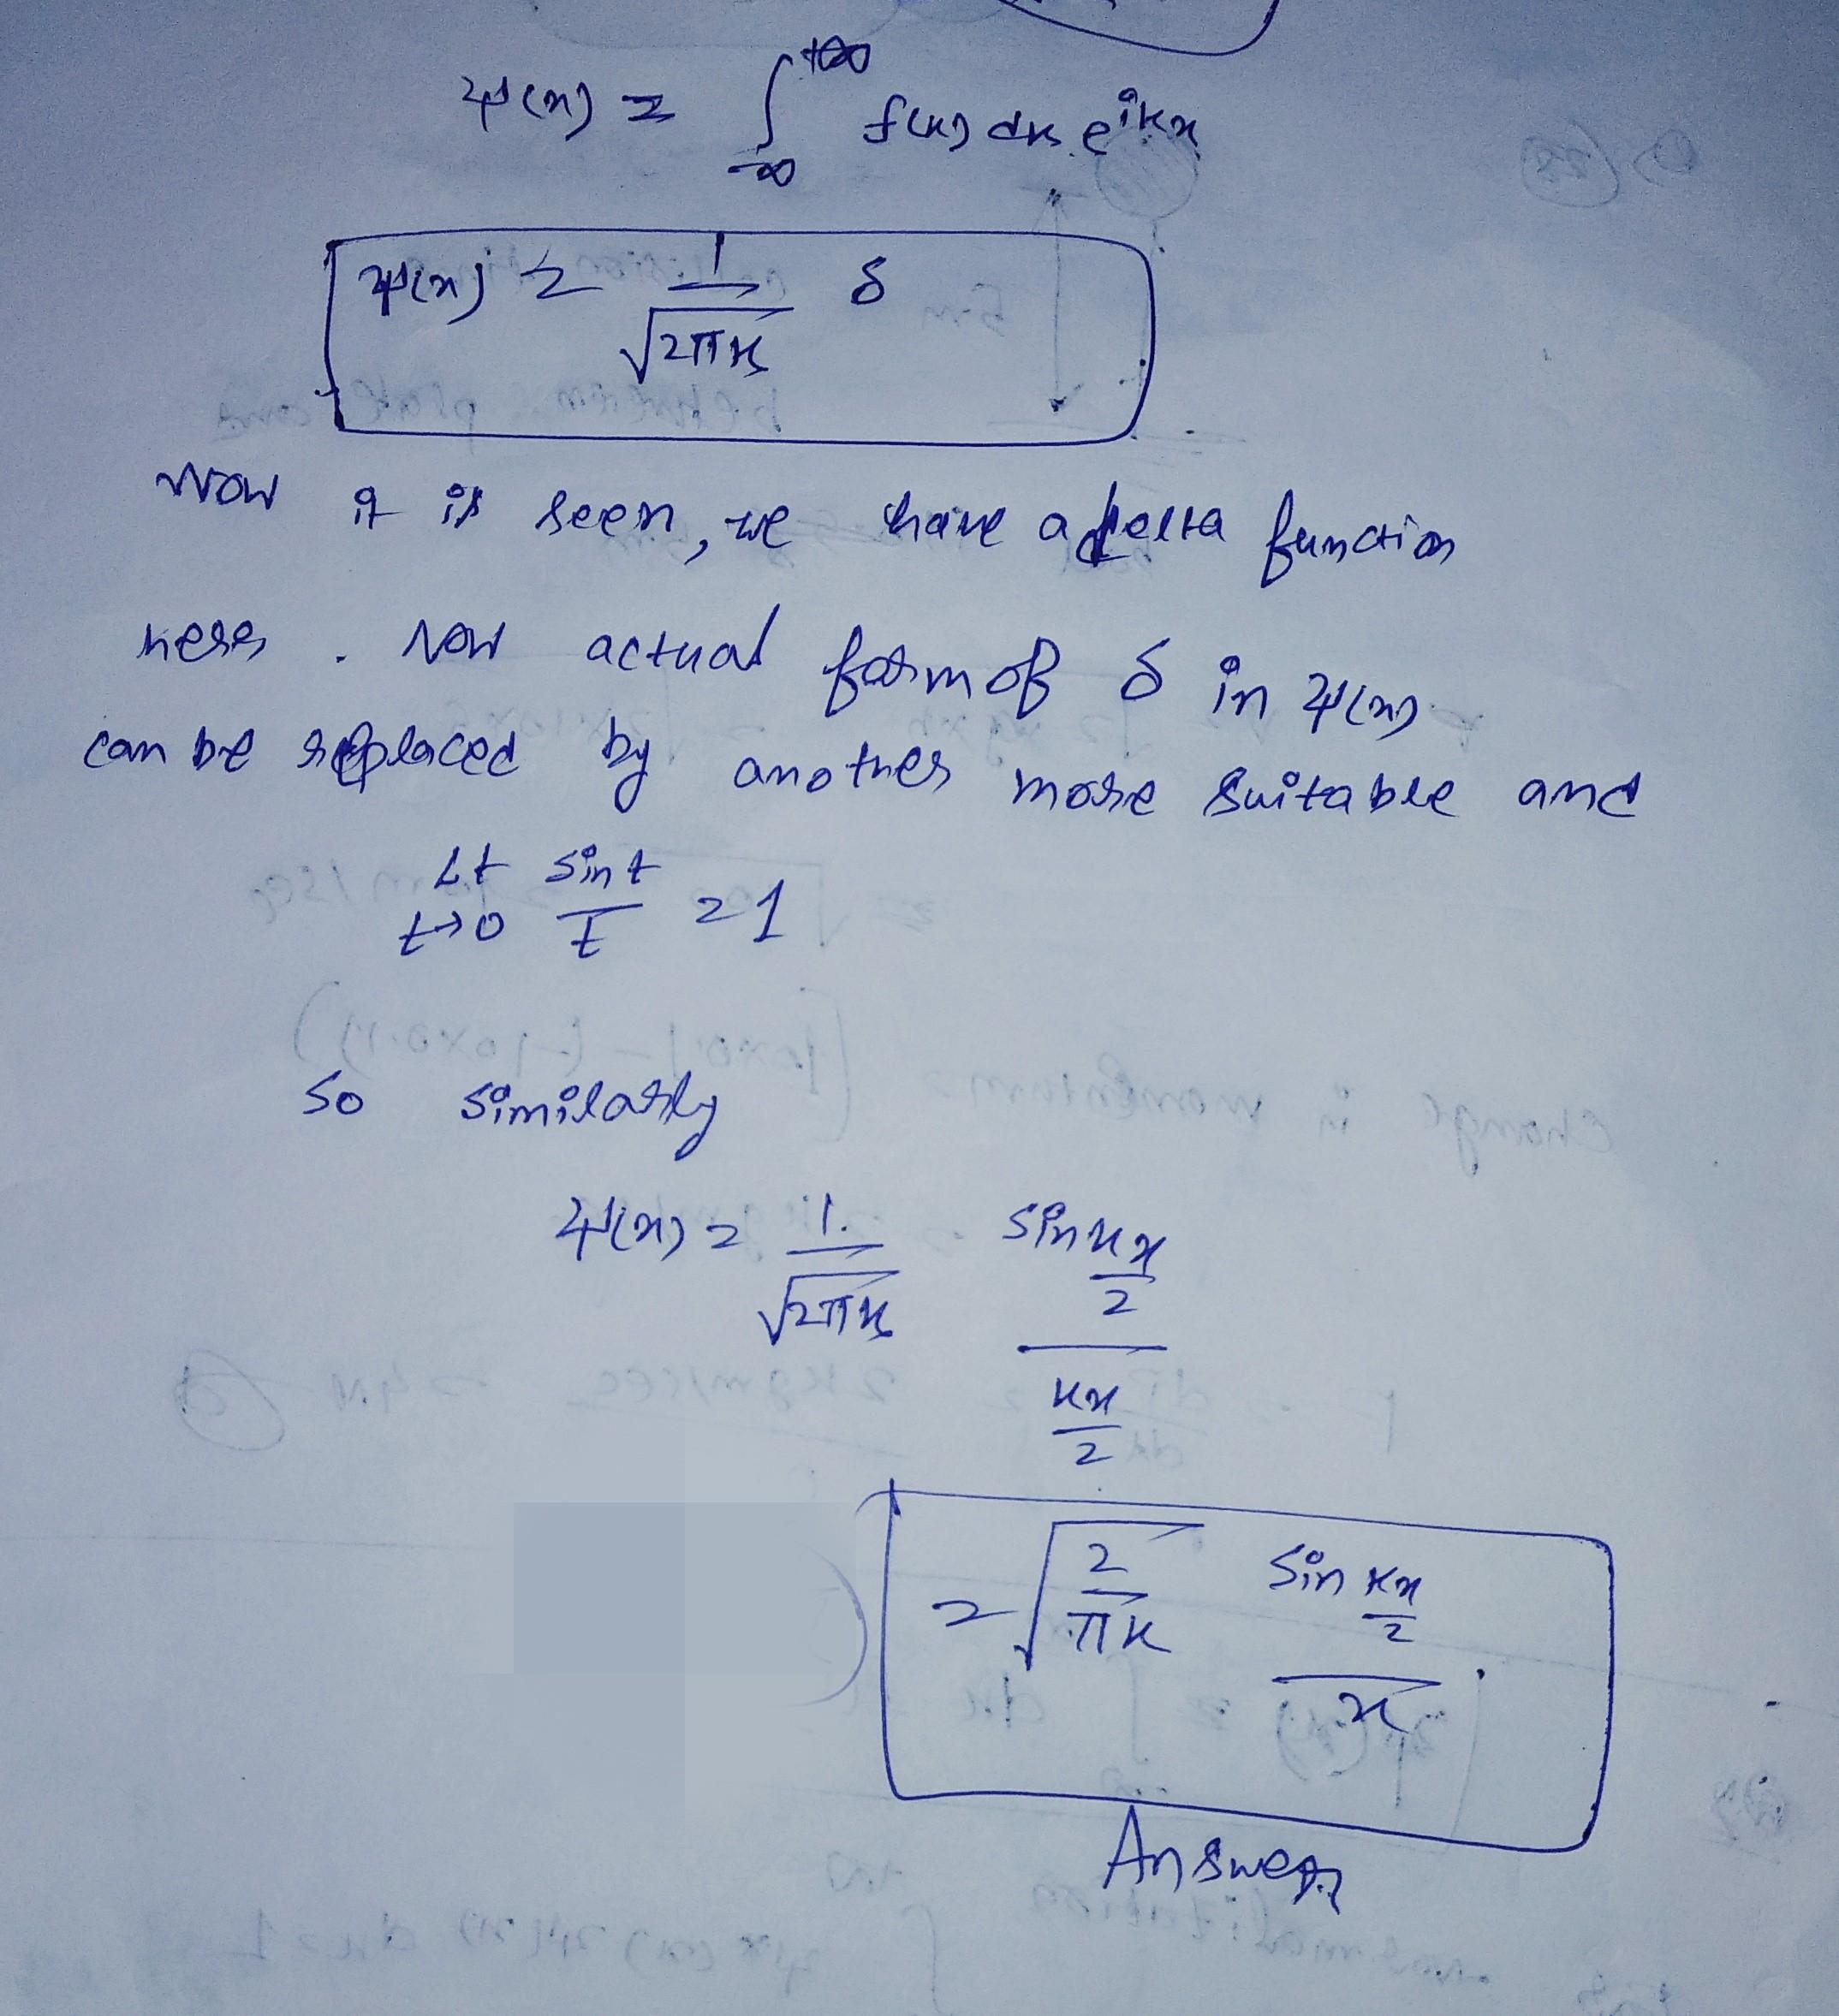 ψ(x) = ∫_{-∞}^{+∞} f(k) dk e^{ikx}
ψ(x) = 1/√(2πk) δ
Now it is seen, we have a delta function
here. Now actual form of δ in ψ(x)
can be replaced by another more suitable and
Lt_{t→0} sin t / t = 1
So similarly
ψ(x) = 1/√(2πk) (sin kx/2) / (kx/2)
= √(2/πk) (sin kx/2) / x .
Answer